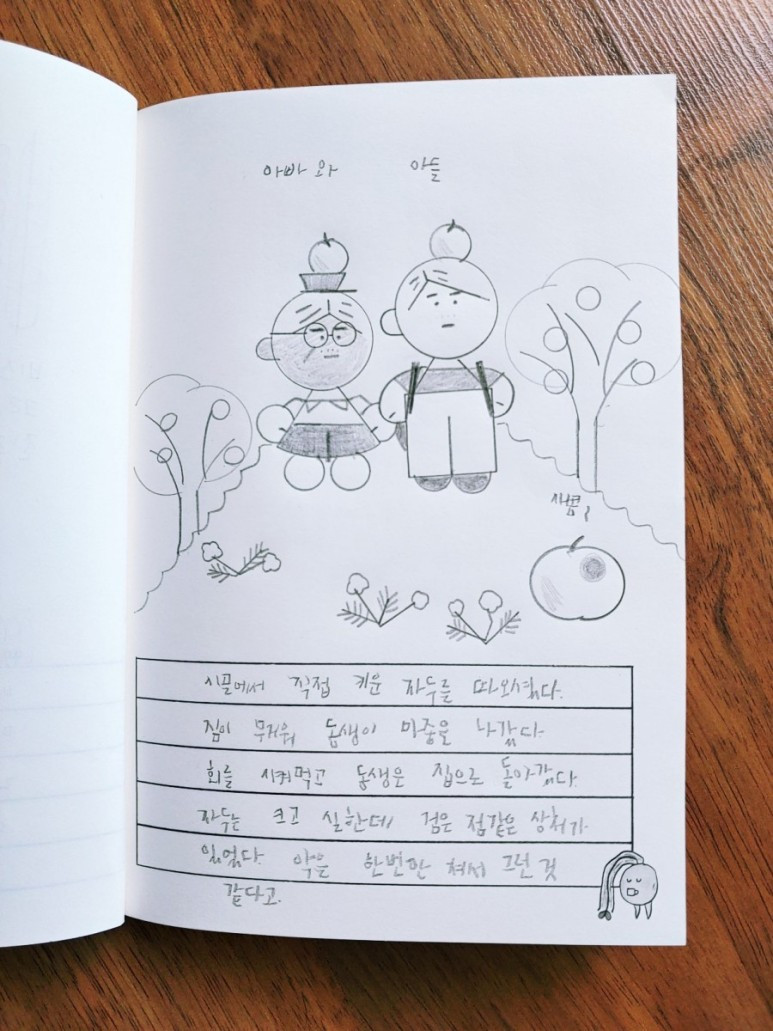 아빠와 아들
새콤
시골에서 직접 키운 자두를 따오셨다.
짐이 무거워 동생이 마중을 나갔다
회를 시켜먹고 동생은 집으로 돌아갔다.
자두는 크고 실한데 검은 점같은 상처가
있었다 약은 한번만 쳐서 그런 것
같다고.